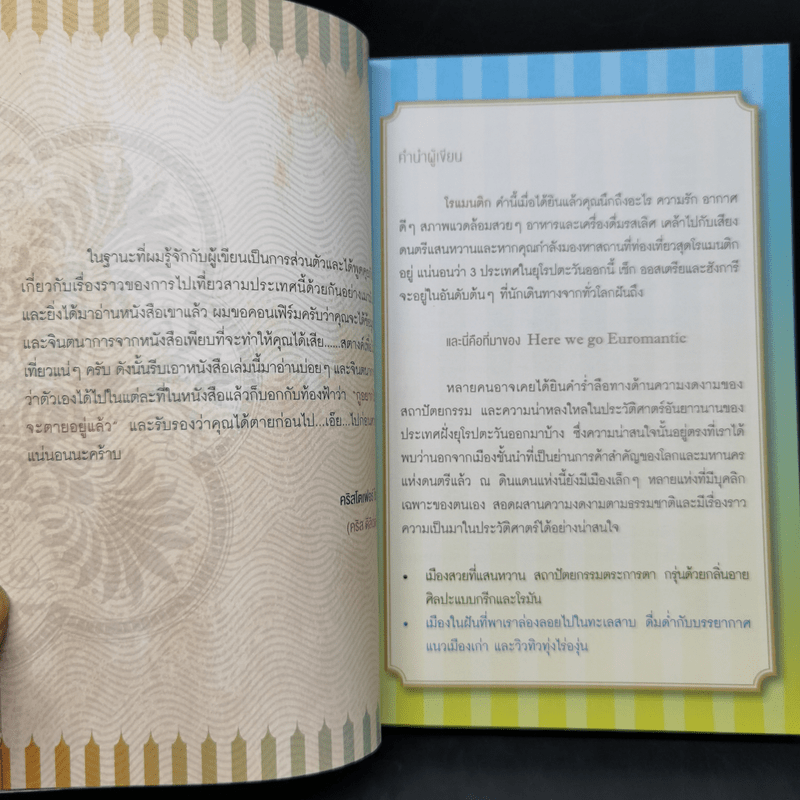 ในฐานะที่ผมรู้จักกับผู้เขียนเป็นการส่วนตัวและได้พูดคุย
เกี่ยวกับเรื่องราวของการไปเที่ยวสามประเทศนี้ด้วยกันอย่าง
และยิ่งได้มาอ่านหนังสือเขาแล้ว ผมขอคอนเฟิร์มครับว่าคุณจะได้
และจินตนาการจากหนังสือเพียบที่จะทำให้คุณได้เสีย......สตางค์
เที่ยวแน่ๆ ครับ ดังนั้นรีบเอาหนังสือเล่มนี้มาอ่านบ่อยๆ และ
ว่าตัวเองได้ไปในแต่ละที่ในหนังสือแล้วก็บอกกับท้องฟ้าว่า
จะตายอยู่แล้ว" และรับรองว่าคุณได้ตายก่อนไป...เอ๊ย...ไปก่อน
แน่นอนนะคร้าบ
คำนำผู้เขียน
โรแมนติก คำนี้เมื่อได้ยินแล้วคุณนึกถึงอะไร ความรัก อากาศ
ดีๆ สภาพแวดล้อมสวยๆ อาหารและเครื่องดื่มรสเลิศ เคล้าไปกับเสียง
ดนตรีแสนหวานและหากคุณกำลังมองหาสถานที่ท่องเที่ยวสุดโรแมนติก
อยู่ แน่นอนว่า 3 ประเทศในยุโรปตะวันออกนี้ เช็ก ออสเตรียและฮังการี
จะอยู่ในอันดับต้นๆ ที่นักเดินทางจากทั่วโลกฝันถึง
และนี่คือที่มาของ Here we go Euromantic
หลายคนอาจเคยได้ยินคำร่ำลือทางด้านความงดงามของ
สถาปัตยกรรม และความน่าหลงใหลในประวัติศาสตร์อันยาวนานของ
ประเทศฝั่งยุโรปตะวันออกมาบ้าง ซึ่งความน่าสนใจนั้นอยู่ตรงที่เราได้
พบว่านอกจากเมืองชั้นนำที่เป็นย่านการค้าสำคัญของโลกและมหานคร
แห่งดนตรีแล้ว ณ ดินแดนแห่งนี้ยังมีเมืองเล็กๆ หลายแห่งที่มีบุคลิก
เฉพาะของตนเอง สอดผสานความงดงามตามธรรมชาติและมีเรื่องราว
ความเป็นมาในประวัติศาสตร์ได้อย่างน่าสนใจ
• เมืองสวยที่แสนหวาน สถาปัตยกรรมตระการตา กรุ่นด้วยกลิ่นอาย
ศิลปะแบบกรีกและโรมัน
• เมืองในฝันที่พาเราล่องลอยไปในทะเลสาบ ดื่มด่ำกับบรรยากาศ
แนวเมืองเก่า และวิวทิวทุ่งไร่องุ่น